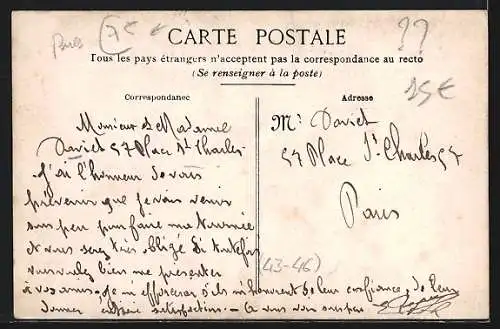 Paris
7€ €
??
CARTE POSTALE
25€
Tous les pays étrangers n'acceptent pas la correspondance au recto
(Se renseigner à la poste)
Correspondance
Adresse
Monsieur & Madame
Daviet 57 Place St Charles
J'ai l'honneur de vous
prévenir que je vais venir
sous peu pour faire ma tournée
et vous serez très obligé Si toutefois
vous voulez bien me presenter
à vos amis, je m'efforcerai s'ils m'honorent de leur confiance, de leur
donner entière satisfaction. -
Mr Daviet
57 Place St Charles 57
Paris
(43-46)